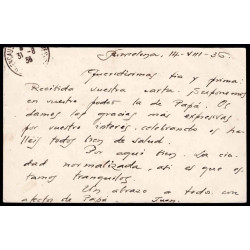 31 -8 36
Barcelona, 14-VIII-36.
Queridísimas tía y prima:
Recibida vuestra carta. Suponemos
en vuestro poder la de Papá. Os
damos las gracias más expresivas
por vuestro interés, celebrando os ha-
lleis todos bien de salud.
Por aquí bien. La ciu-
dad normalizada, así es que es-
tamos tranquilos.
Un abrazo a todos, con
afecto de Papá Juan.